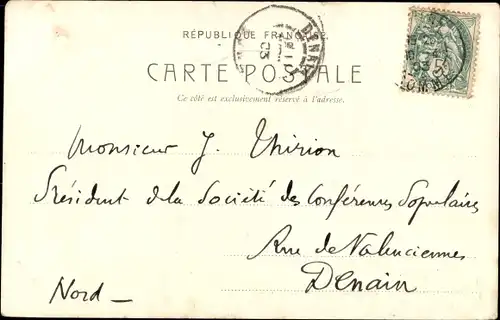 RÉPUBLIQUE FRANÇAISE
CARTE POSTALE
Ce côté est exclusivement réservé à l'adresse.
DENAIN
03
Monsieur J. Thirion
Président de la Société des Conférences Populaires
Rue de Valenciennes
Denain
Nord —